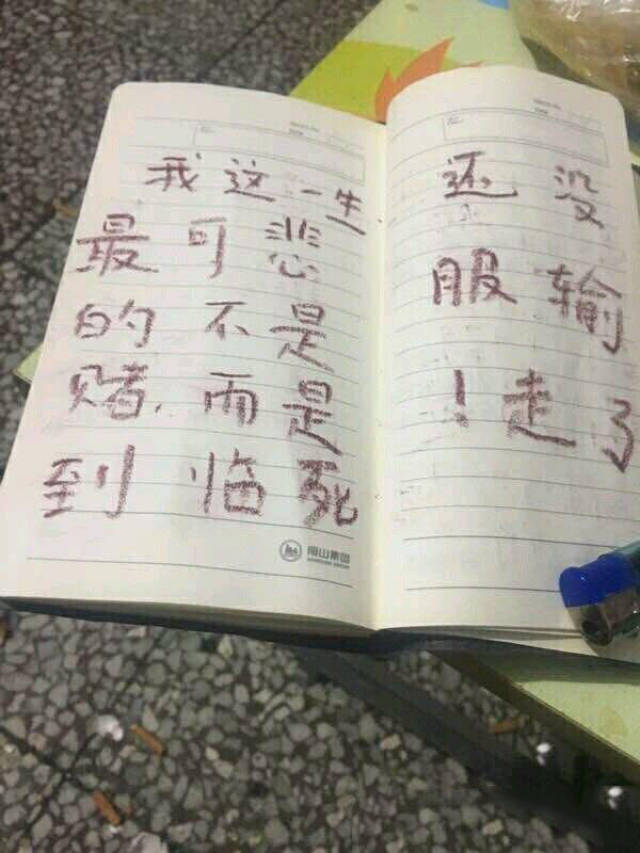 我这一生
最可悲
的不是
赌,而是
到临死
南山集团
还没
服输
!走了